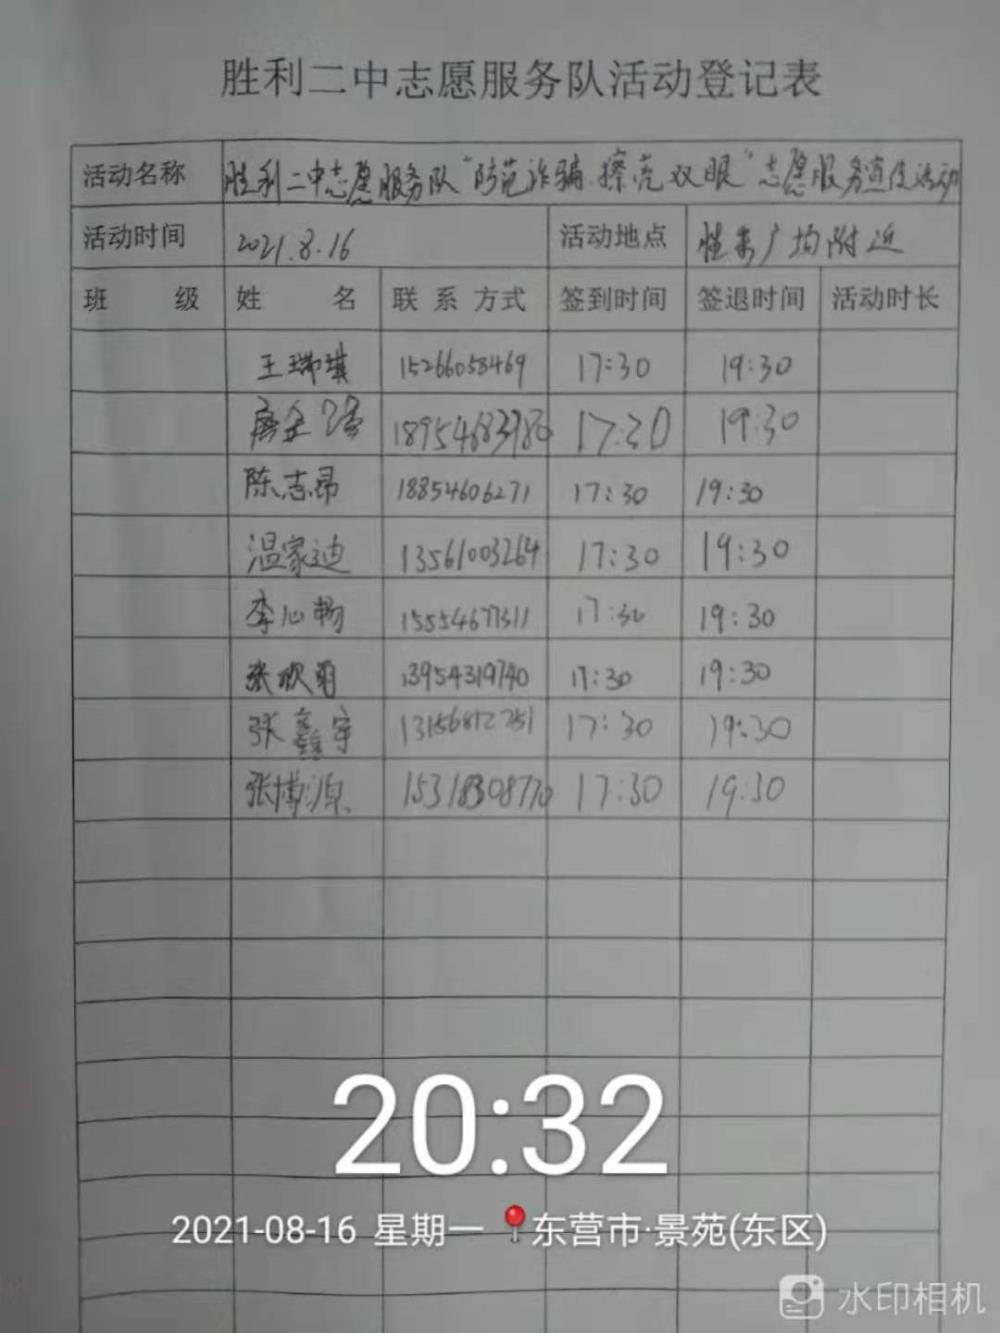 胜利二中志愿服务队活动登记表
活动名称 胜利二中志愿服务队“防范诈骗、擦亮双眼”志愿服务宣传活动
活动时间 2021.8.16 活动地点 广场附近
班 级 姓 名 联 系 方式 签到时间 签退时间 活动时长
王瑞琪 15266058469 17:30 19:30
17:30 19:30
陈志昂 18854606271 17:30 19:30
温家迪 13561003264 17:30 19:30
李心畅 15554677311 17:30 19:30
张欣雨 13954319740 17:30 19:30
张鑫宇 13156812751 17:30 19:30
张博源 15318308770 17:30 19:30
20:32
2021-08-16 星期一 东营市·景苑(东区)
水印相机